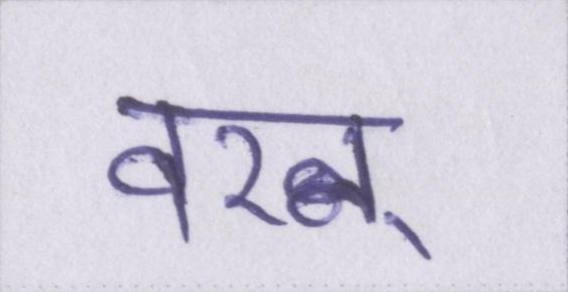 वरन्